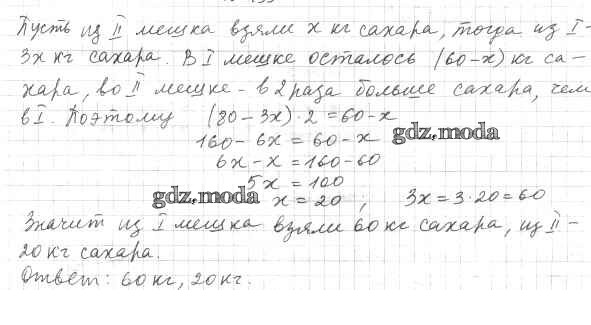 Пусть из II мешка взяли x кг сахара, тогда из I -
3x кг сахара. В I мешке осталось (60-x) кг са-
хара, во II мешке - в 2 раза больше сахара, чем
в I. Поэтому (80-3x)·2=60-x
160-6x=60-x gdz.moda
6x-x=160-60
5x=100
gdz.moda x=20, 3x=3·20=60
Значит из I мешка взяли 60 кг сахара, из II -
20 кг сахара.
Ответ: 60 кг, 20 кг.